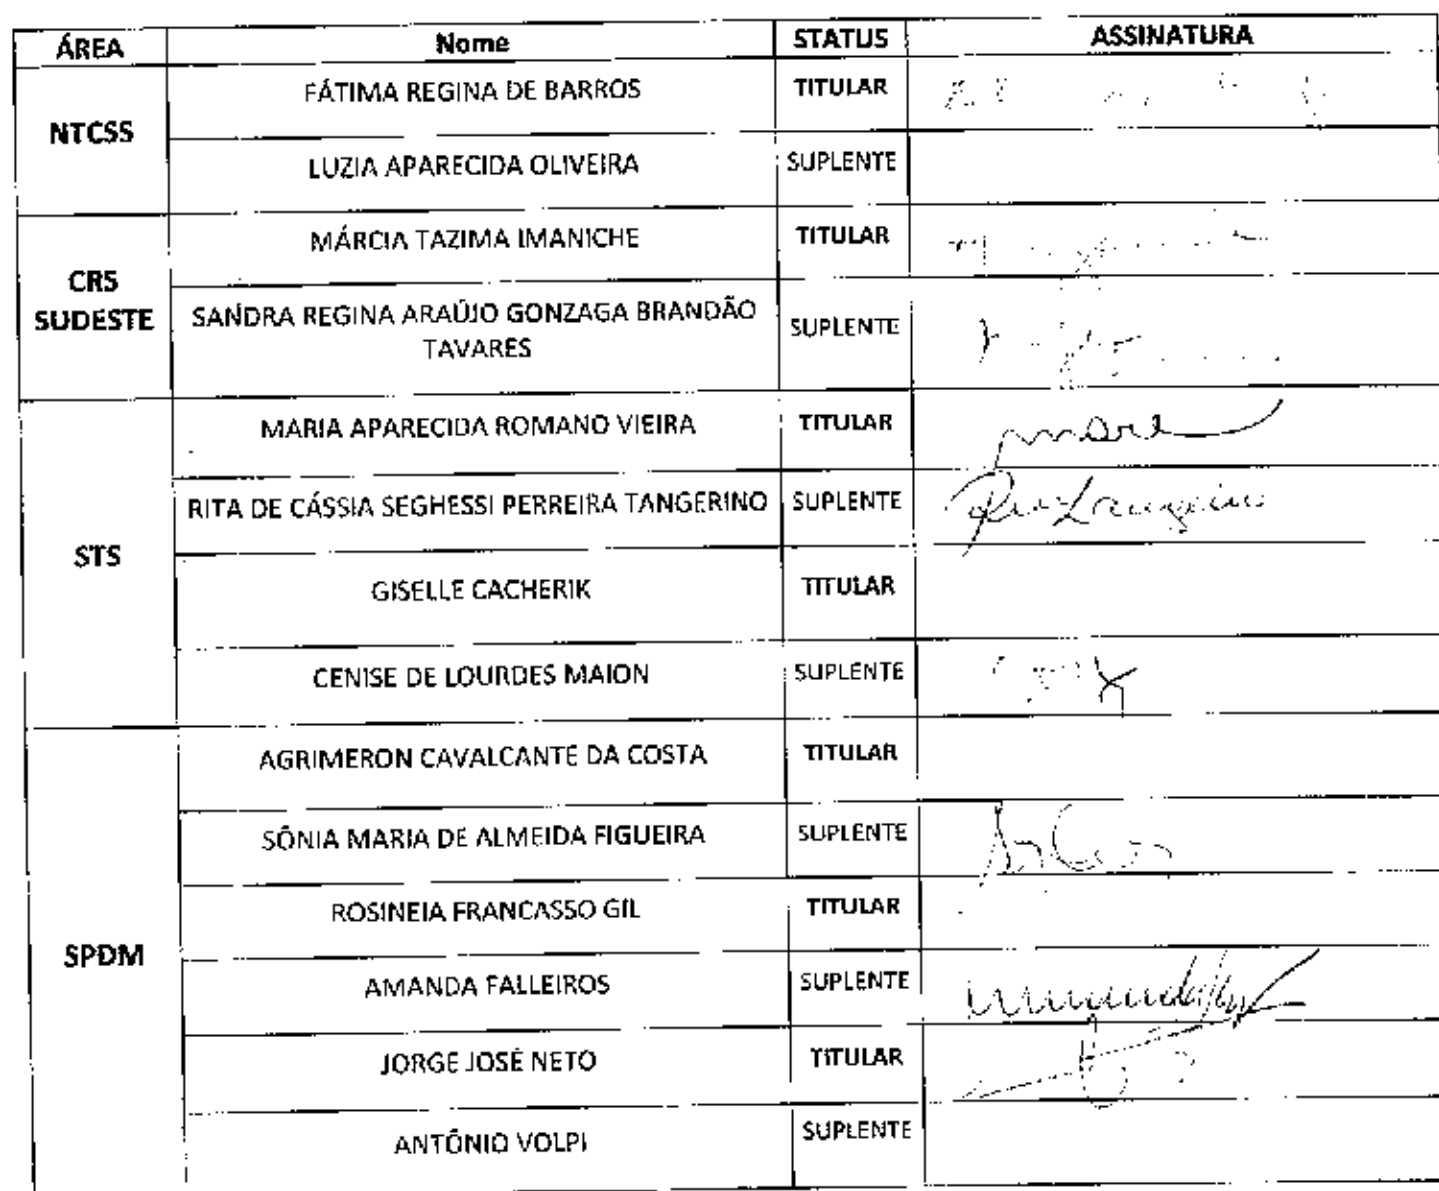 ÁREA Nome STATUS ASSINATURA
FÁTIMA REGINA DE BARROS TITULAR
NTCSS
LUZIA APARECIDA OLIVEIRA SUPLENTE
MÁRCIA TAZIMA IMANICHE TITULAR
CRS
SUDESTE
SANDRA REGINA ARAÚJO GONZAGA BRANDÃO
TAVARES
SUPLENTE
MARIA APARECIDA ROMANO VIEIRA TITULAR
RITA DE CÁSSIA SEGHESSI PERREIRA TANGERINO SUPLENTE
STS
GISELLE CACHERIK TITULAR
CENISE DE LOURDES MAION SUPLENTE
AGRIMERON CAVALCANTE DA COSTA TITULAR
SÔNIA MARIA DE ALMEIDA FIGUEIRA SUPLENTE
ROSINEIA FRANCASSO GIL TITULAR
SPDM
AMANDA FALLEIROS SUPLENTE
JORGE JOSÉ NETO TITULAR
ANTÔNIO VOLPI SUPLENTE